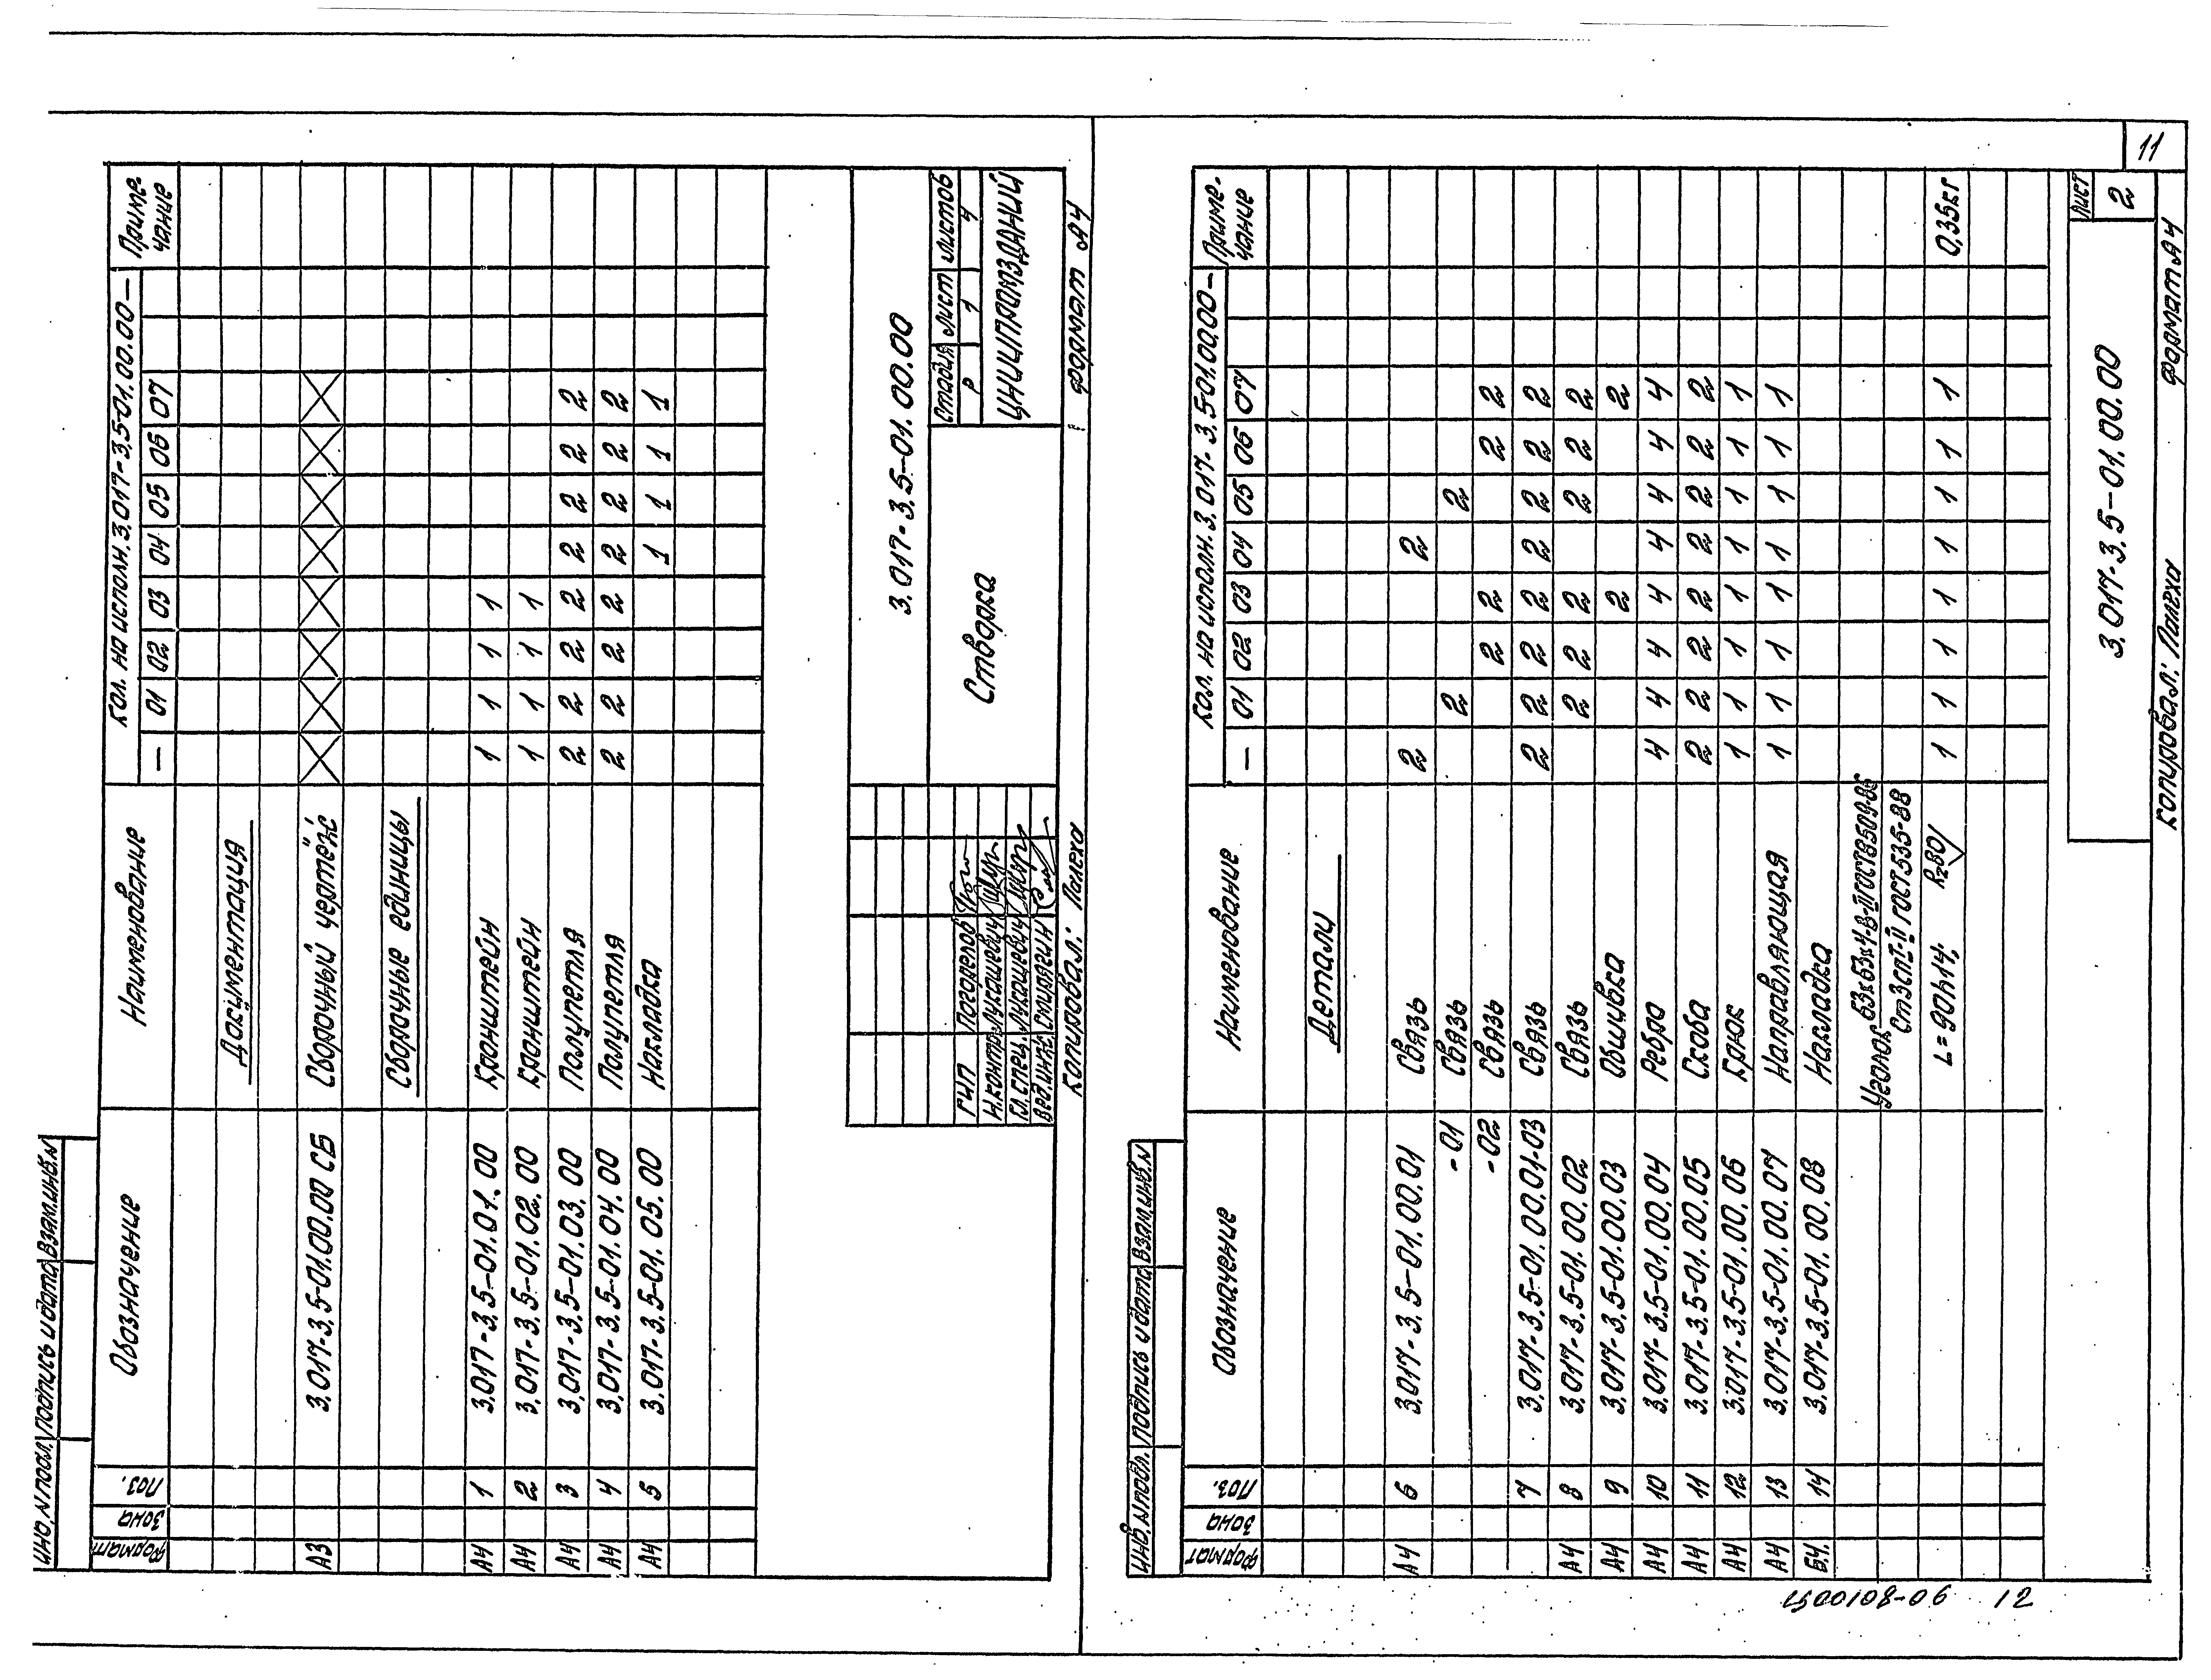 Формат Зона Поз. Обозначение Наименование Кол. на исполн. 3.017-3.5-01.00.00— Приме-чание
— 01 02 03 04 05 06 07
Документация
А3 3.017-3.5-01.00.00 СБ Сборочный чертёж
Сборочные единицы
А4 1 3.017-3.5-01.01.00 Кронштейн 1 1 1 1
А4 2 3.017-3.5-01.02.00 Кронштейн 1 1 1 1
А4 3 3.017-3.5-01.03.00 Полупетля 2 2 2 2 2 2 2 2
А4 4 3.017-3.5-01.04.00 Полупетля 2 2 2 2 2 2 2 2
А4 5 3.017-3.5-01.05.00 Накладка 1 1 1 1
Инв.№подл. Подпись и дата Взам.инв.№
3.017-3.5-01.00.00
ГИП Погорелов
Н.контр. Лукашевич
Гл.спец. Лукашевич
Вед.инж. Спирягин
Створка
Стадия Лист Листов
Р 1 4
ЦНИИПРОМЗДАНИЙ
Копировал: Панеха Формат А4
11
Формат Зона Поз. Обозначение Наименование Кол. на исполн. 3.017-3.5-01.00.00— Приме-чание
— 01 02 03 04 05 06 07
Детали
А4 6 3.017-3.5-01.00.01 Связь 2 2
-01 Связь 2 2
-02 Связь 2 2 2 2
7 3.017-3.5-01.00.01-03 Связь 2 2 2 2 2 2 2 2
А4 8 3.017-3.5-01.00.02 Связь 2 2 2 2 2 2
А4 9 3.017-3.5-01.00.03 Обшивка 2 2
А4 10 3.017-3.5-01.00.04 Ребро 4 4 4 4 4 4 4 4
А4 11 3.017-3.5-01.00.05 Скоба 2 2 2 2 2 2 2 2
А4 12 3.017-3.5-01.00.06 Крюк 1 1 1 1 1 1 1 1
А4 13 3.017-3.5-01.00.07 Направляющая 1 1 1 1 1 1 1 1
Б.Ч. 14 3.017-3.5-01.00.08 Накладка
Уголок 63х63х4-В-II ГОСТ 8509-86
Ст3сп1-II ГОСТ 535-88
L=90h14; Rz80 1 1 1 1 1 1 1 1 0,35кг
Инв.№подл. Подпись и дата Взам.инв.№
3.017-3.5-01.00.00
Лист
2
Копировал: Панеха Формат А4
12